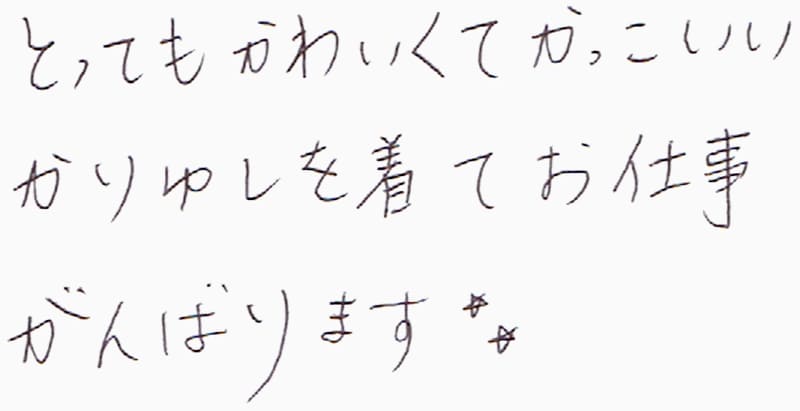 とってもかわいくてかっこいい
かりゆしを着てお仕事
がんばります☆☆